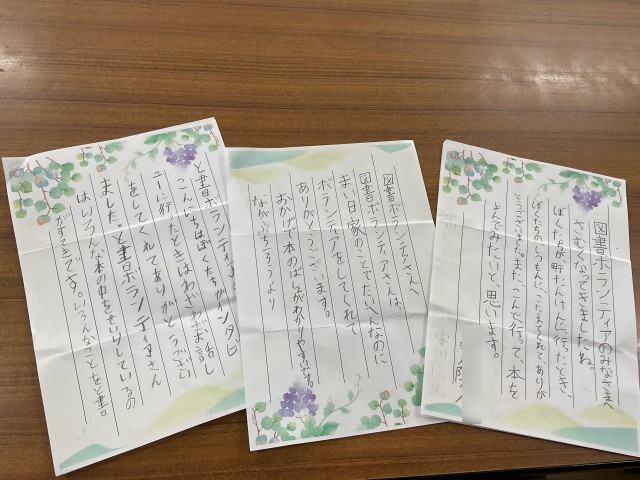 図書ボランティアのみなさまへ
さむくなってきましたね。
ぼくたちが町たんけんに行ったとき、
ぼくたちのしつもんに、こたえてくれて、ありが
とうございました。また、こんど行って、本を
よんでみたいと、思います。
図書ボランティアさんへ
図書ボランティアさんは、
まい日家のことでたいへんなのに
ボランティアをしてくれて
ありがとうございます。
おかげで本のばしょがわかりやすい
と書ボランティア
こんにちはぼくたちがインタビ
ューに行ったときはわざわざお話し
をしてくれてありがとうござい
ました。と書ボランティアさん
はいろんな本の中を
がすてきです。いろんなことをと書。